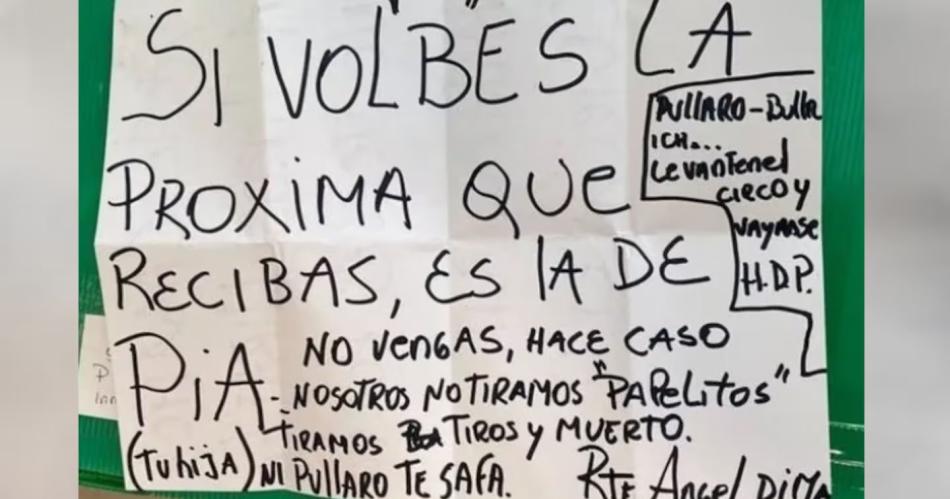 SI VOLBES LA
PROXIMA QUE
RECIBAS, ES lA DE
PiA
(Tu hijA)
PullARO-Bullr
ICH...
LevanTenel
CIRCO y
VAYANSE
H.D.P.
NO VENGAS, HACE CASO
NOSOTROS NO TIRAMOS "PAPELITOS"
TIRAMOS TIROS y MUERTO.
NI PULLARO TE SAFA.
RTE Angel DiMA